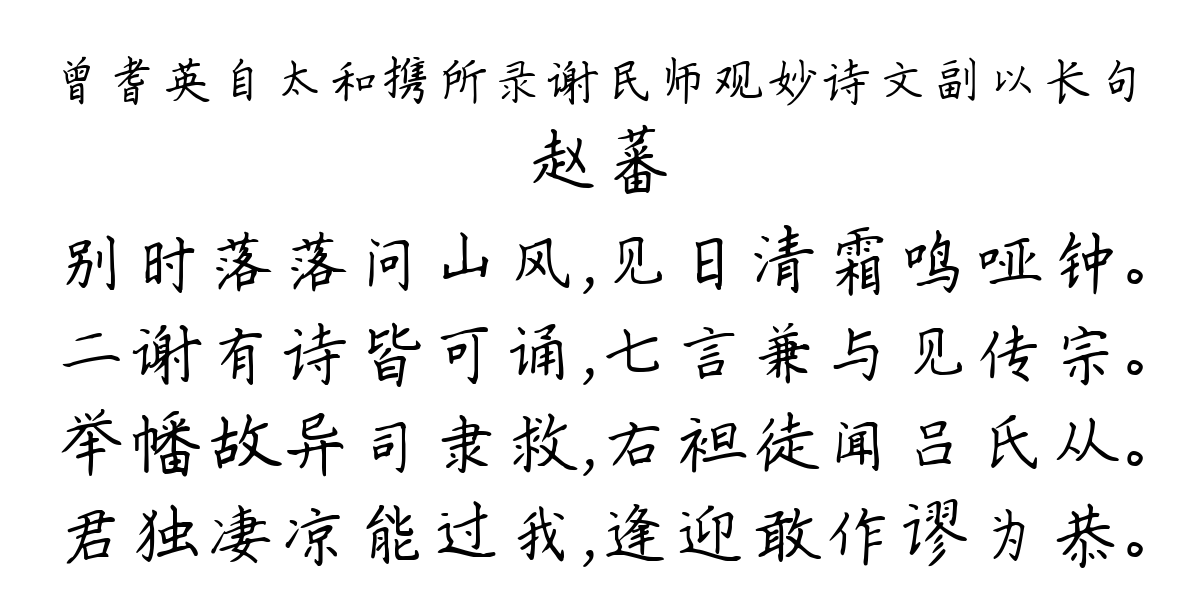 曾耆英自太和携所录谢民师观妙诗文副以长句
赵蕃
别时落落问山风,见日清霜鸣哑钟。
二谢有诗皆可诵,七言兼与见传宗。
举幡故异司隶救,右袒徒闻吕氏从。
君独凄凉能过我,逢迎敢作谬为恭。